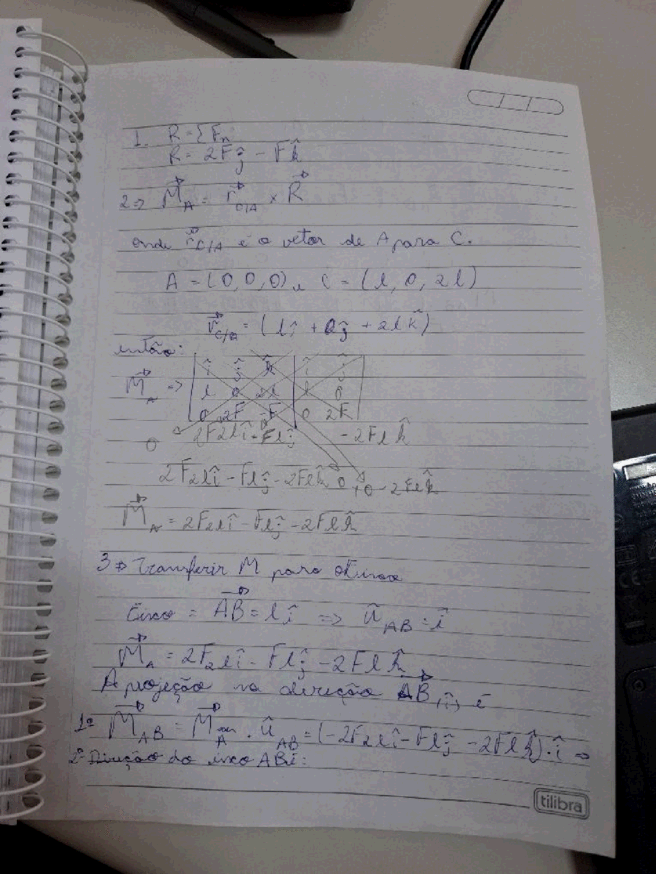 1. R = ΣF
R = 2Fĵ - Fk̂
2 => M⃗_A = r⃗_C/A × R⃗
onde r⃗_C/A é o vetor de A para C.
A = (0, 0, 0) e C = (l, 0, 2l)
r⃗_C/A = (lî + 0ĵ + 2lk̂)
então:
î ĵ k̂ î ĵ
M⃗_A => l 0 2l l 0
0 2F -F 0 2F
0 2F2lî - Flĵ - 2Flk̂
2F2lî - Flĵ - 2Flk̂ 0 + 0 - 2Flk̂
M⃗_A = 2F2lî - Flĵ - 2Flk̂
3 => Transferir M para
Eixo = A⃗B = lî => û_AB = î
M⃗_A = 2F2lî - Flĵ - 2Flk̂
A projeção na direção A⃗B, î, é
1º M⃗_AB = M⃗_A · û_AB = (-2F2lî - Flĵ - 2Flk̂) · î =>
2º Direção do eixo ABî:
tilibra